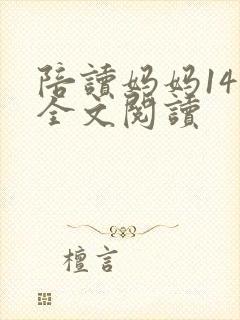 陪讀妈妈14
全文閱讀
檀言